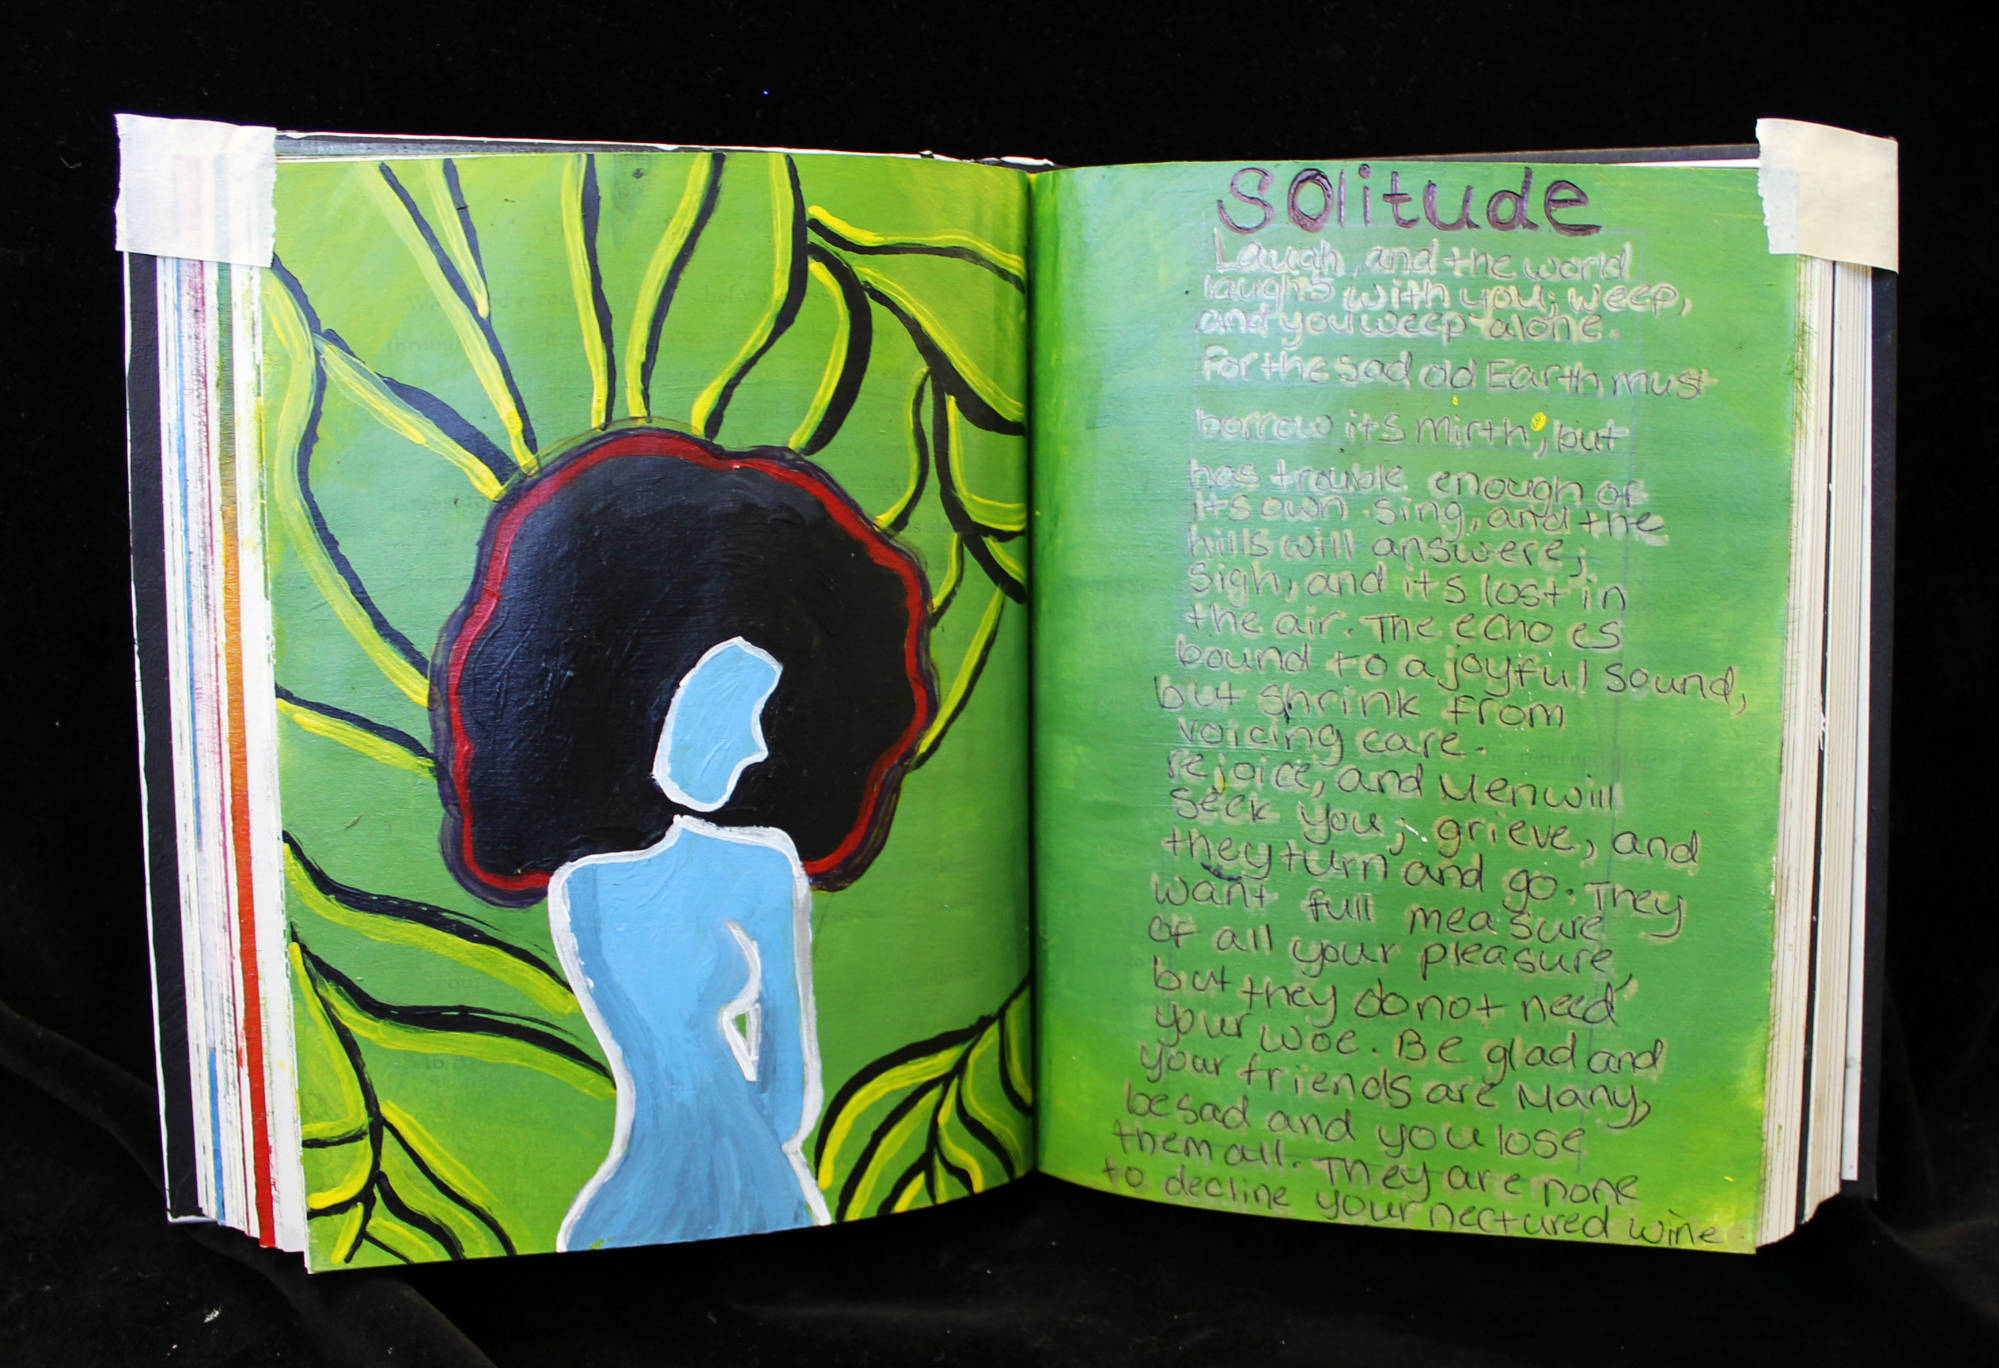 Solitude
Laugh, and the world
laughs with you; weep,
and you weep alone.
For the sad old Earth must
borrow its Mirth, but
has trouble enough of
its own. Sing, and the
hills will answere;
Sigh, and its lost in
the air. The echo es
bound to a joyful Sound,
but shrink from
voicing care.
rejoice, and Men will
Seek you; grieve, and
they turn and go. They
want full mea sure
of all your pleasure,
but they do not need
your woe. Be glad and
your friends are Many,
be sad and you lose
them all. They are none
to decline your nectured wine